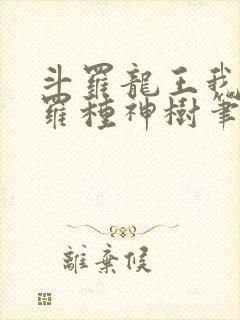 斗羅龍王我
羅種神樹筆
離棄候